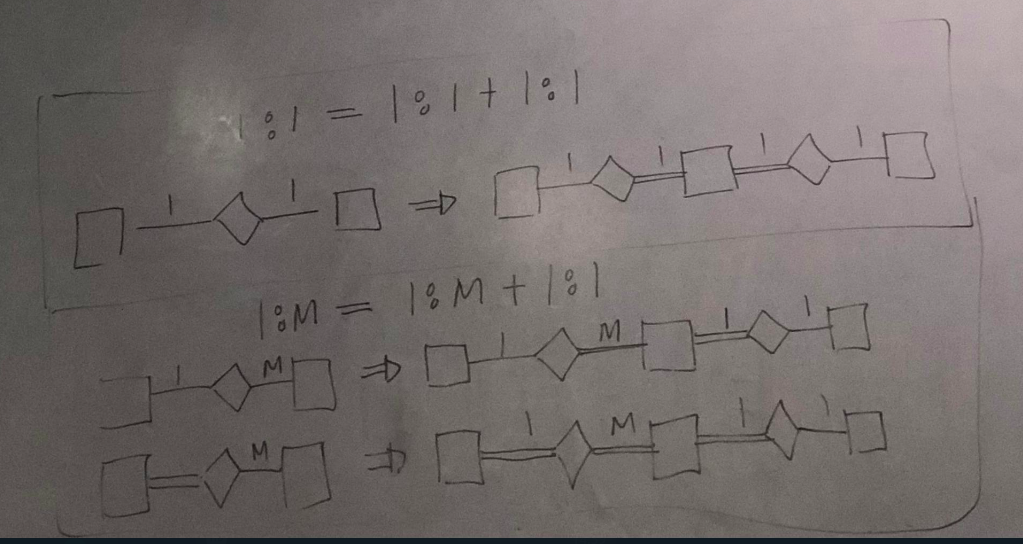 1:1 = 1:1 + 1:1
1 1 ⇒ 1 1 1 1
1:M = 1:M + 1:1
1 M ⇒ 1 M 1 1
M ⇒ 1 M 1 1